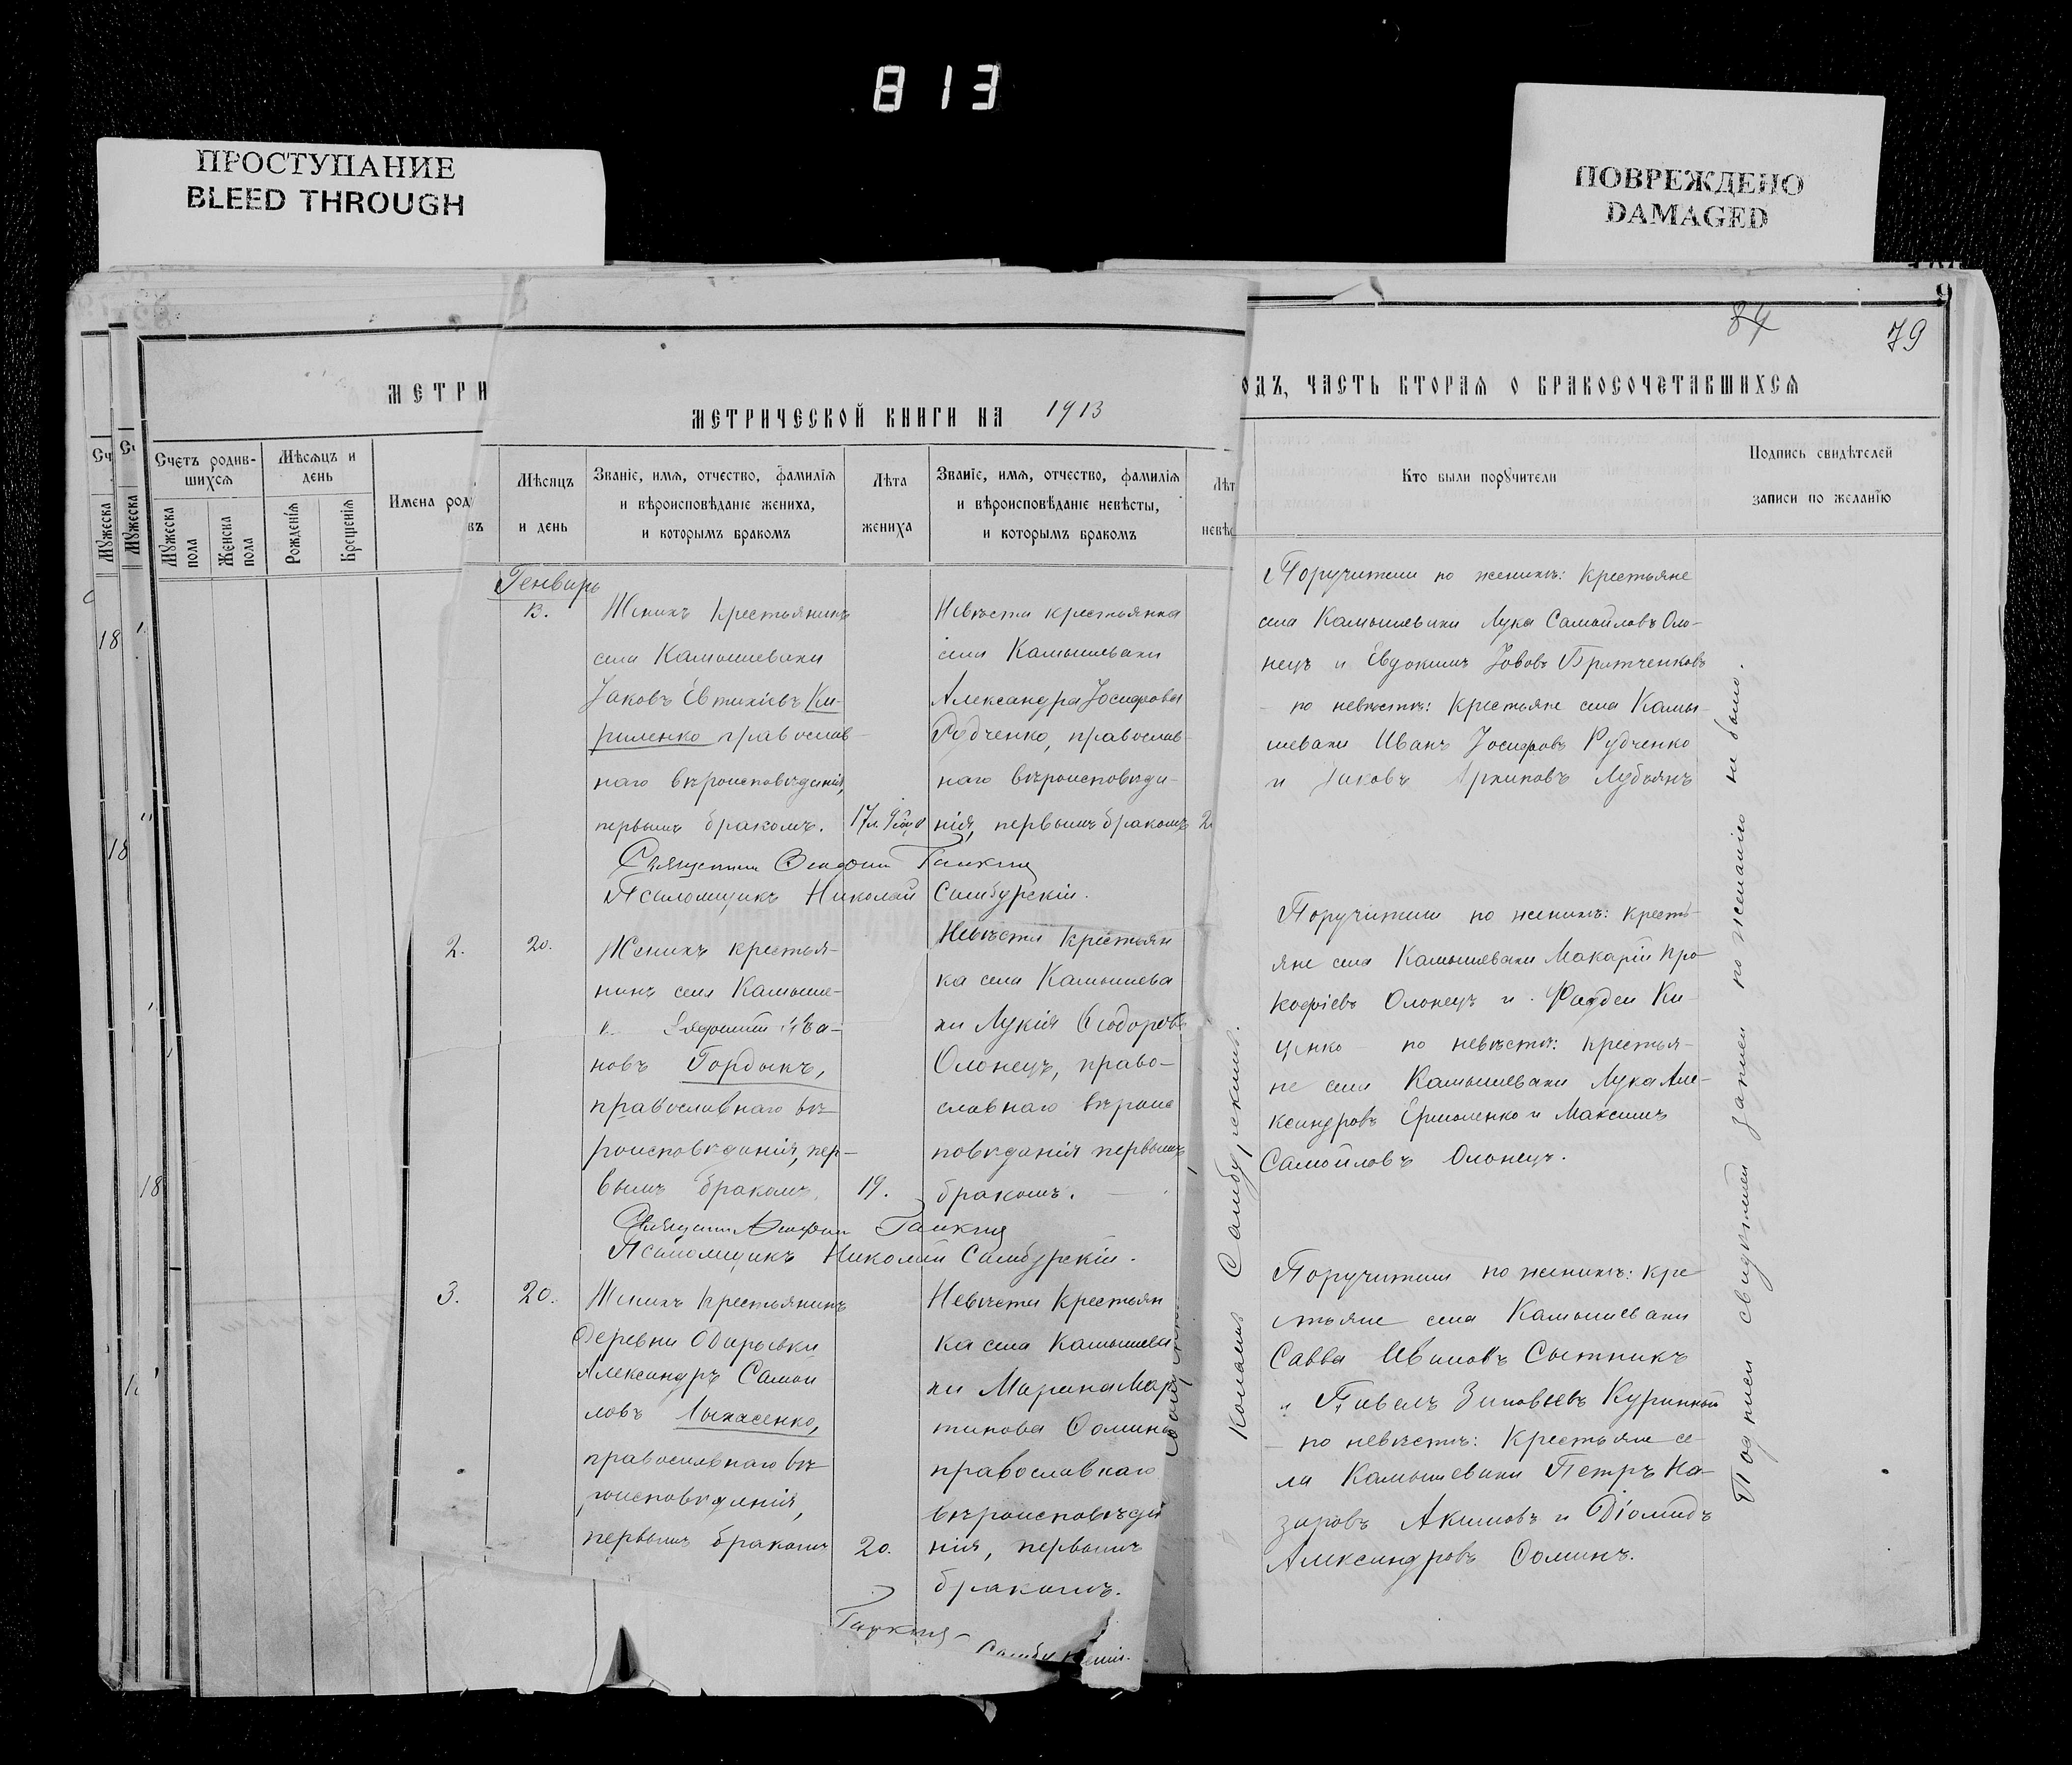 813
ПРОСТУПАНИЕ
BLEED THROUGH
ПОВРЕЖДЕНО
DAMAGED
84
79
МЕТРИ
МЕТРИЧЕСКОЙ КНИГИ НА 1913
ОДЪ, ЧАСТЬ ВТОРАЯ О БРАКОСОЧЕТАВШИХСЯ
Счетъ родив-
шихся
Мѣсяцъ и
день
Мужеска
пола
Женска
пола
Рожденія
Крещенія
Имена род
Мѣсяцъ
и день
Званіе, имя, отчество, фамилія
и вѣроисповѣданіе жениха,
и которымъ бракомъ
Лѣта
жениха
Званіе, имя, отчество, фамилія
и вѣроисповѣданіе невѣсты,
и которымъ бракомъ
Лѣт
невѣс
Кто были поручители
Подпись свидѣтелей
записи по желанію
Генварь
Женихъ крестьянинъ
села Камышевахи
Іаковъ Евтихіевъ Ки-
риленко православ-
наго вѣроисповѣданія,
первымъ бракомъ.
17л.
Невѣста крестьянка
села Камышевахи
Александра Іосифова
Рудченко, православ-
наго вѣроисповѣда-
нія, первымъ бракомъ
Поручители по женихѣ: крестьяне
села Камышевахи Лука Самойловъ Оло-
нецъ и Евдокимъ Іововъ Братченковъ
- по невѣстѣ: крестьяне села Камы-
шевахи Иванъ Іосифовъ Рудченко
и Іаковъ Архиповъ Лубянъ
Псаломщикъ Николай Самбурскій.
2.
20.
Женихъ крестья-
нинъ села Камыше-
Ива-
новъ Гордыкъ,
православнаго вѣ-
роисповѣданія, пер-
вымъ бракомъ.
19.
Невѣста крестьян
ка села Камышева
хи Лукія Ѳеодорова
Олонецъ, право-
славнаго вѣроис
повѣданія первымъ
бракомъ.
Поручители по женихѣ: кресть-
яне села Камышевахи Макарій Про
кофіевъ Олонецъ и Фаддей Ки
ценко - по невѣстѣ: крестья-
не села Камышевахи Лука Але-
ксандровъ Ермоленко и Максимъ
Самойловъ Олонецъ.
Псаломщикъ Николай Самбурскій.
3.
20.
Женихъ крестьянинъ
деревни
Александръ Самой
ловъ
православнаго вѣ-
роисповѣданія,
первымъ бракомъ
20.
Невѣста крестьян
ка села Камышева
хи Марина Мар
тинова Ѳомина
православнаго
вѣроисповѣда
нія, первымъ
бракомъ.
Поручители по женихѣ: кре
стьяне села Камышевахи
Савва Ивановъ Сытникъ
и Павелъ Зиновьевъ Куринный
- по невѣстѣ: крестьяне се-
ла Камышевахи Петръ На-
заровъ Акимовъ и Діомидъ
Александровъ Ѳоминъ.
Подписи свидѣтелей записи по желанію не было.